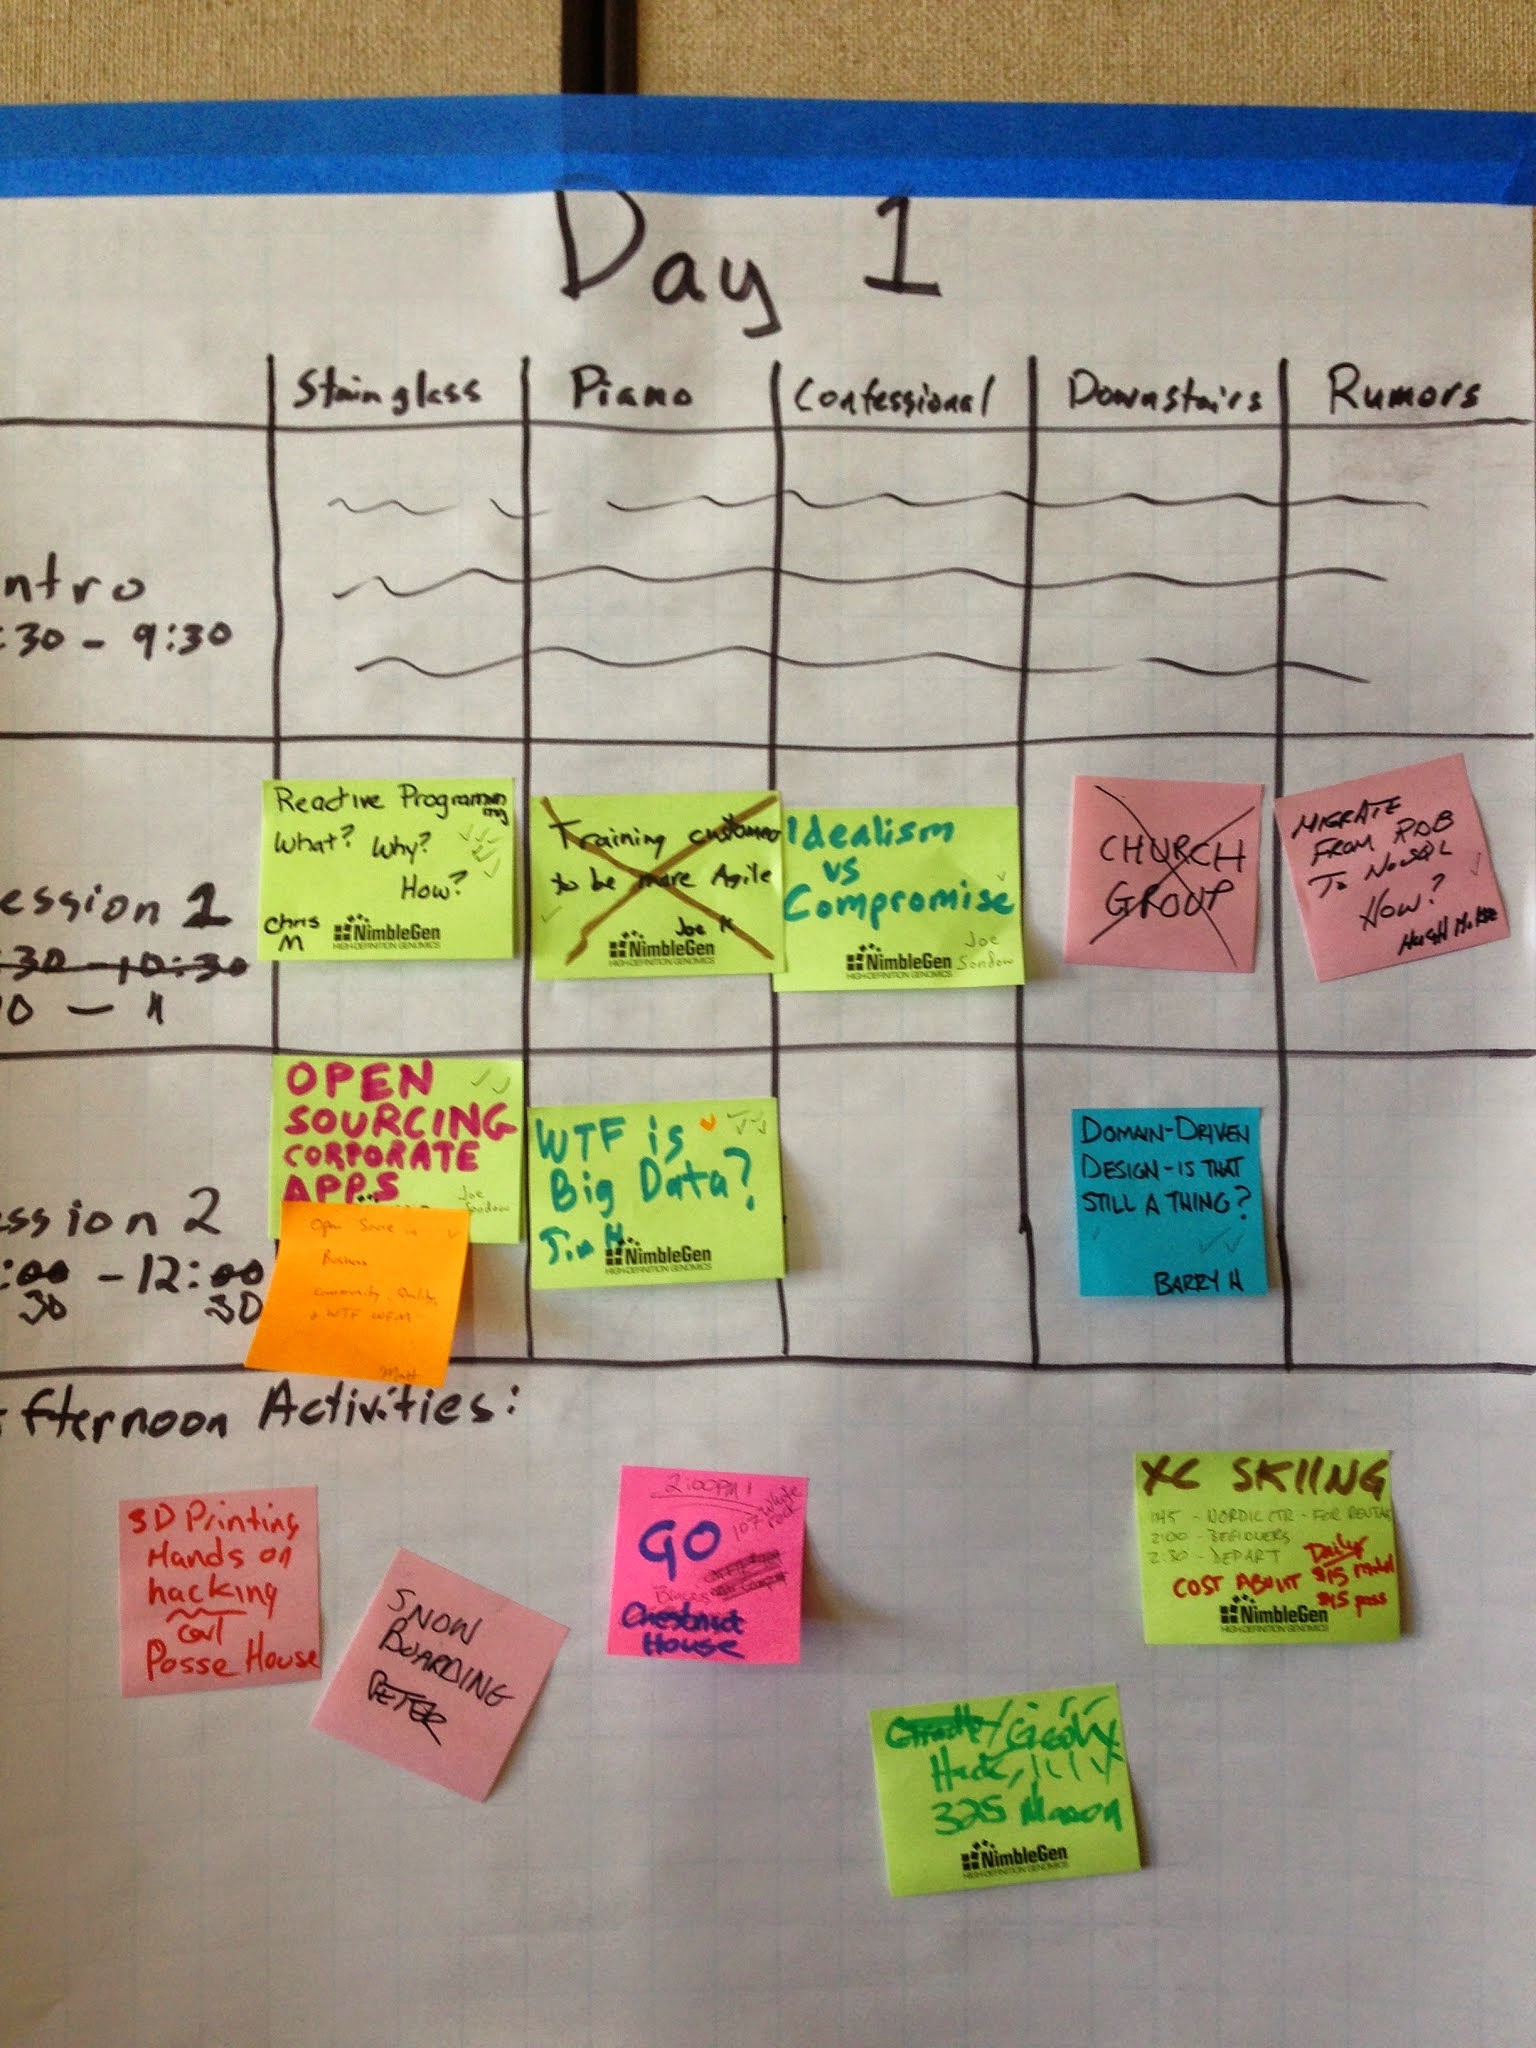 Day 1
Stainglass
Piano
Confessional
Downstairs
Rumors
ntro
:30 - 9:30
ession 1
:30 - 10:30
10 - 11
Reactive Programm
ing
What? Why?
How?
Chris
M
NimbleGen
HIGH-DEFINITION GENOMICS
Training customers
to be more Agile
Joe K
NimbleGen
HIGH-DEFINITION GENOMICS
Idealism
vs
Compromise
Joe
Sondow
NimbleGen
HIGH-DEFINITION GENOMICS
CHURCH
GROUP
MIGRATE
FROM RDB
To NoSQL
HOW?
ession 2
:00 - 12:00
30 30
OPEN
SOURCING
CORPORATE
APPS
Joe
Sondow
Open Source is
Business
Community, Quality,
+ WTF
Matt
WTF is
Big Data?
Tim H
NimbleGen
HIGH-DEFINITION GENOMICS
DOMAIN-DRIVEN
DESIGN - IS THAT
STILL A THING?
BARRY H
fternoon Activities:
3D Printing
Hands on
hacking
at
Posse House
SNOW
BOARDING
PETER
2:00PM!
GO
107 White
rock
Chestnut
House
XC SKIING
1:45 - NORDIC CTR - FOR RENTAL
2:00 - BEGINNERS
2:30 - DEPART
Daily
COST ABOUT $15 rental
$15 pass
NimbleGen
HIGH-DEFINITION GENOMICS
Gradle/
Hack,
325 Mason
NimbleGen
HIGH-DEFINITION GENOMICS